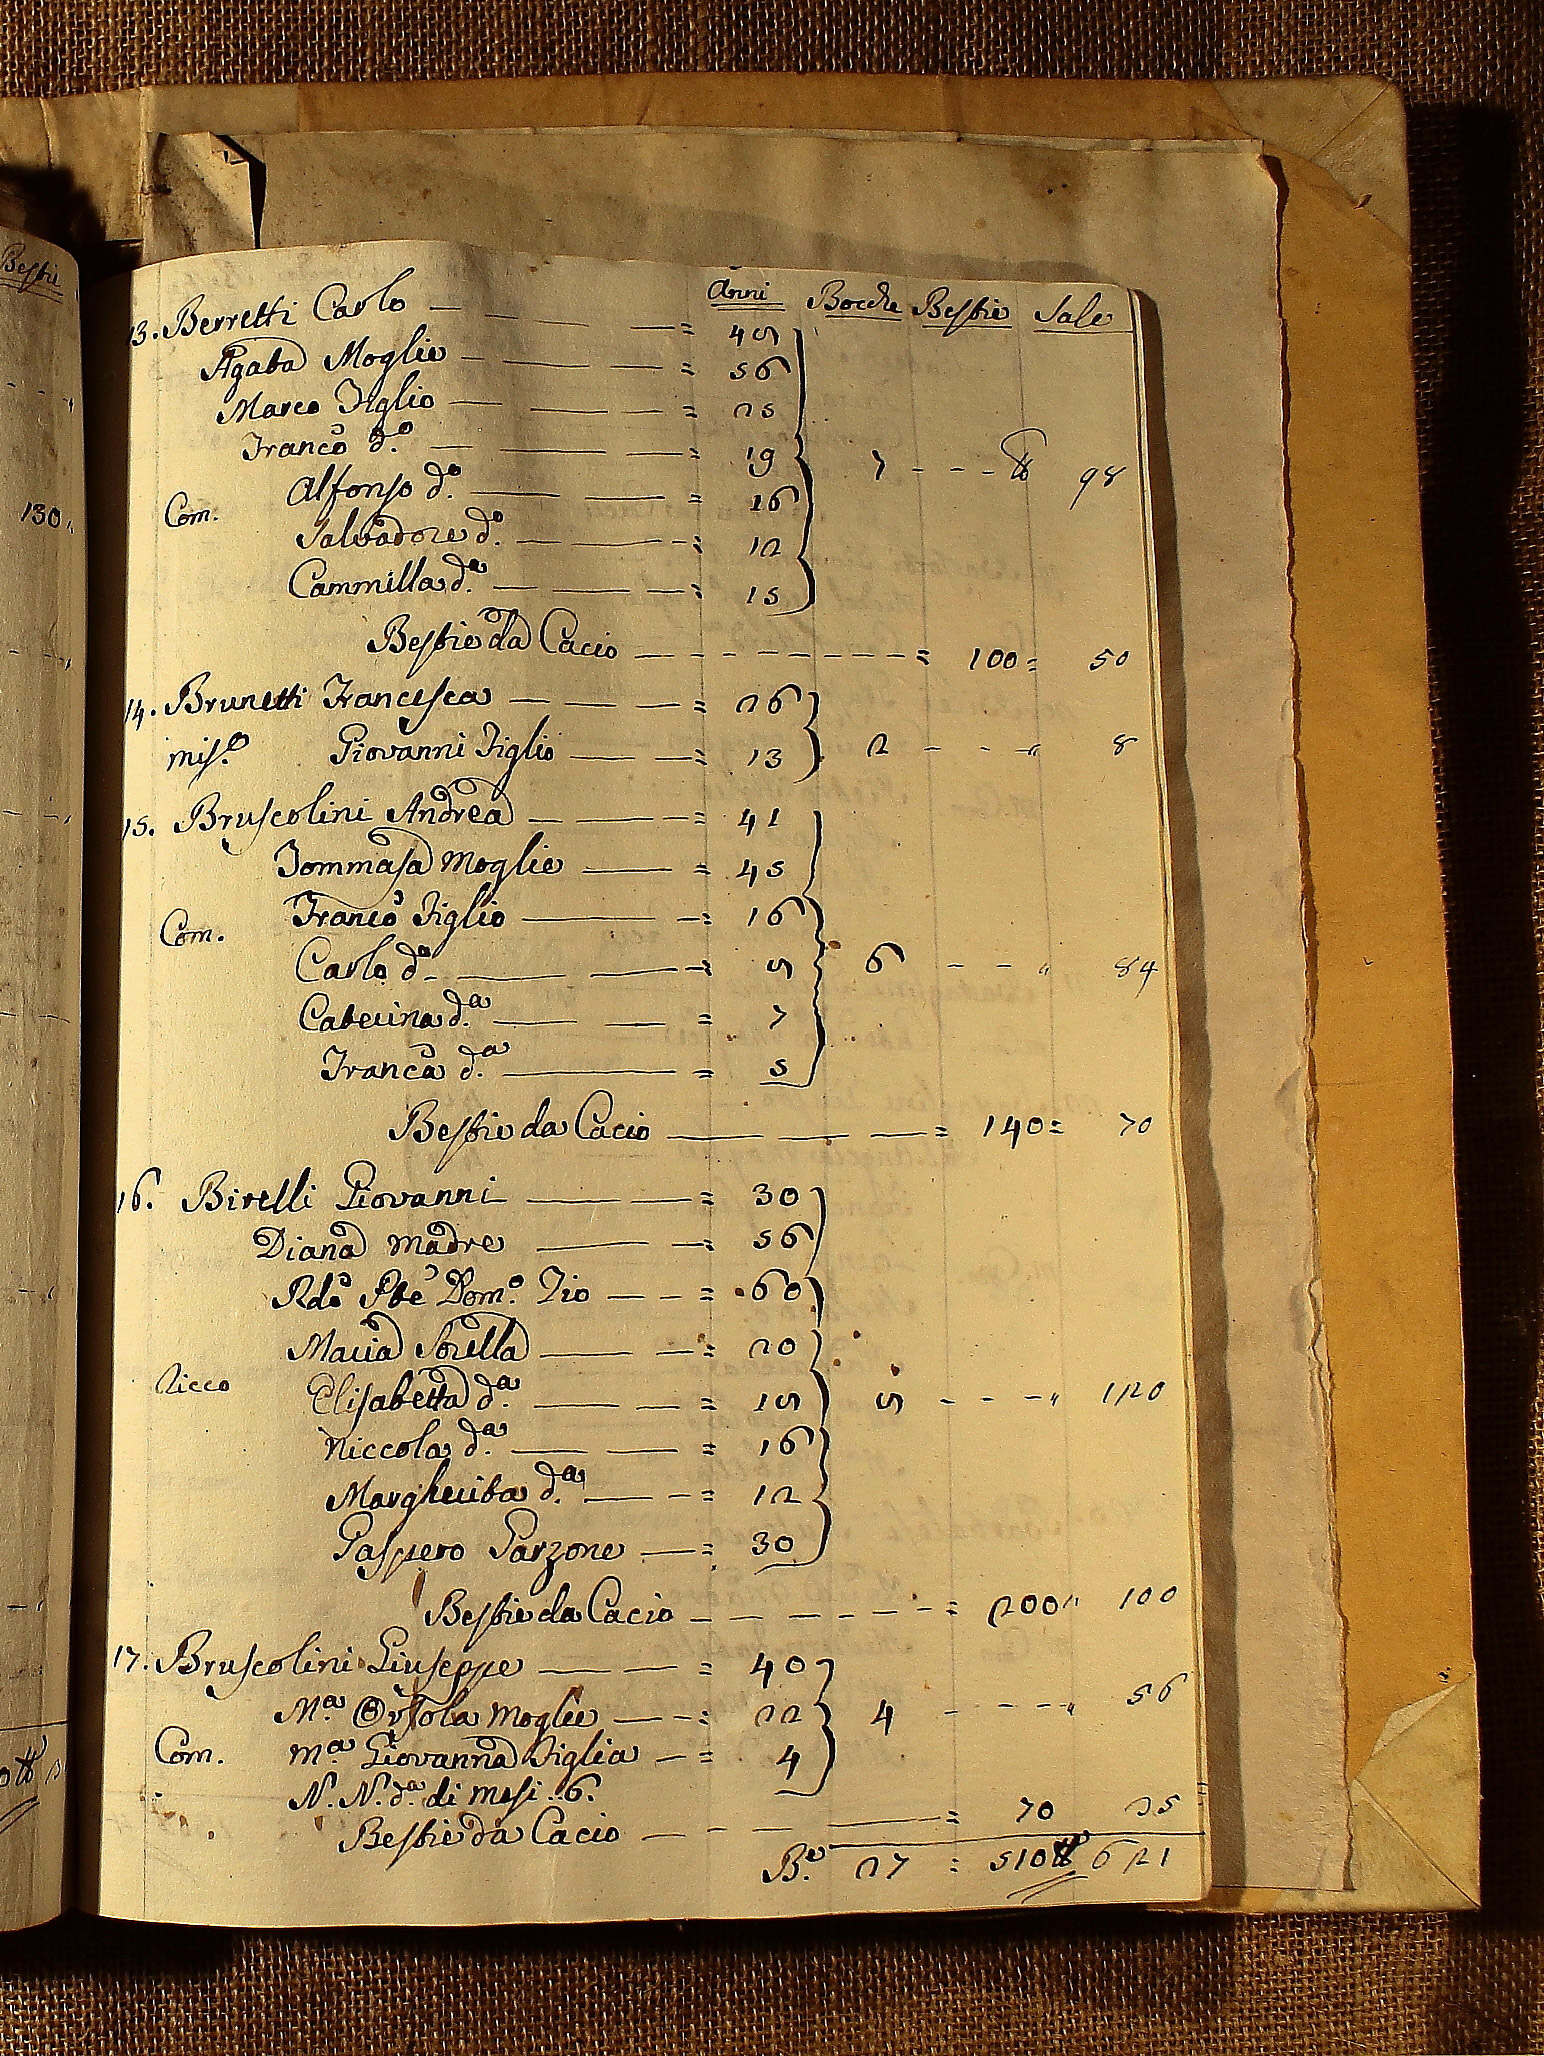 Bestie
130
Anni Bocche Bestie Sale
13. Berretti Carlo — — — = 48
Agata Moglie — — — = 56
Marco Figlio — — — = 25
Franco d.o — — — = 19
7 - - - ℔ 98
Alfonso d.o — — = 16
Com.
Salvadore d.o — — = 12
Cammilla d.a — — = 15
Bestie da Cacio — — — = 100 = 50
14. Brunetti Francesca — — — = 26
mis.e Giovanni Figlio — — = 13 2 - - - " 8
15. Bruscolini Andrea — — — = 41
Tommasa Moglie — — = 45
Com. Franco Figlio — — = 16
Carlo d.o — — = 8 6 - - " 84
Caterina d.a — — = 7
Franca d.a — = 5
Bestie da Cacio — — — = 140 = 70
16. Birelli Giovanni — — = 30
Diana Madre — — = 56
Rdo Pte Dom.o Zio — — = 60
Maria Sorella — — = 20
Ricco Elisabetta d.a — — = 18 8 - - - " 120
Niccola d.a — — = 16
Margherita d.a — — = 12
Gaspero Garzone — = 30
Bestie da Cacio — — — = 200 " 100
17. Bruscolini Giuseppe — — = 40
M.a Orsola Moglie — — = 22 4 - - - " 56
Com. M.a Giovanna Figlia — = 4
N. N. d.a di mesi . 6.
Bestie da Cacio — — — = 70 35
B.e 27 = 510 ℔ 621